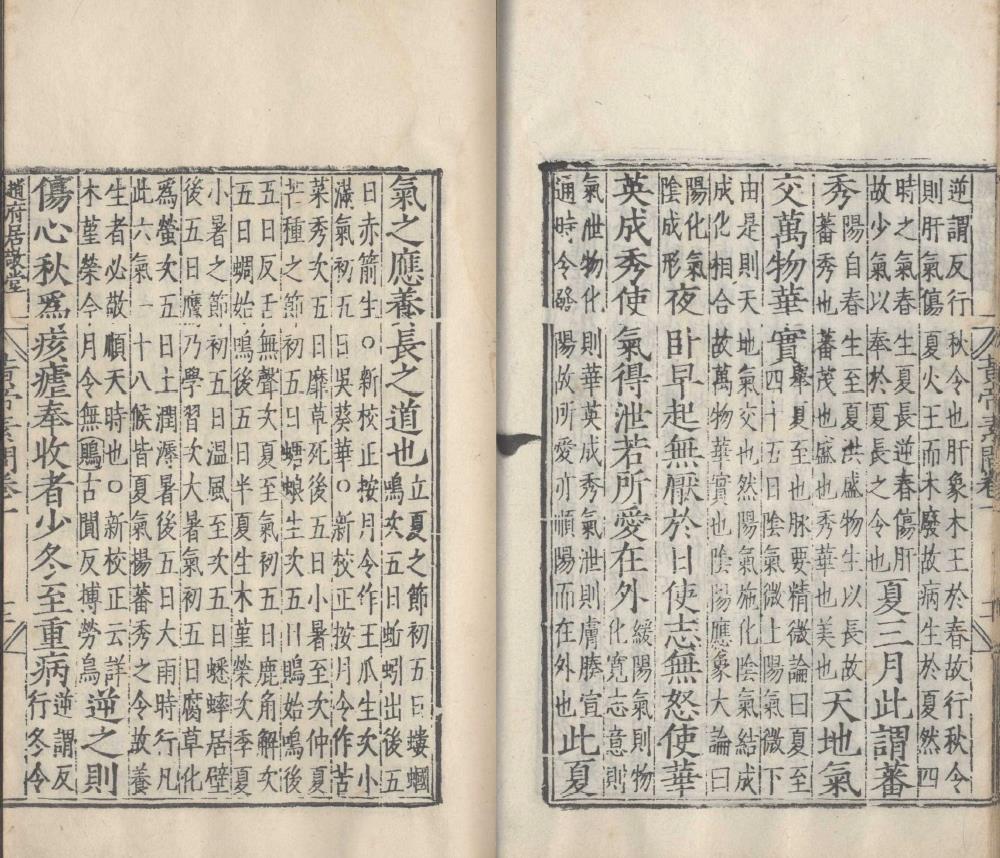 逆謂反行秋令也肝象木王於春故行秋令
則肝氣傷夏火王而木廢故病生於夏然四
時之氣春生夏長逆春傷肝
故少氣以奉於夏長之令也
夏三月此謂蕃
秀
陽自春生至夏洪盛物生以長故
蕃秀也蕃茂也盛也秀華也美也
天地氣
交萬物華實
舉夏至也脉要精微論曰夏至
四十五日陰氣微上陽氣微下
由是則天地氣交也然陽氣施化陰氣結成
成化相合故萬物華實也陰陽應象大論曰
陽化氣
陰成形
夜臥早起無厭於日使志無怒使華
英成秀使氣得泄若所愛在外
緩陽氣則物
化寬志意則
氣泄物化則華英成秀氣泄則膚腠宣
通時令發陽故所愛亦順陽而在外也
此夏
氣之應養長之道也
立夏之節初五日螻蟈
鳴次五日蚯蚓出後五
日赤箭生○新校正按月令作王瓜生次小
滿氣初五日吳葵華○新校正按月令作苦
菜秀次五日靡草死後五日小暑至次仲夏
芒種之節初五日螗蜋生次五日鵙始鳴後
五日反舌無聲次夏至氣初五日鹿角解次
五日蜩始鳴後五日半夏生木菫榮次季夏
小暑之節初五日溫風至次五日蟋蟀居壁
後五日鷹乃學習次大暑氣初五日腐草化
爲螢次五日土潤溽暑後五日大雨時行凡
此六氣一十八候皆夏氣揚蕃秀之令故養
生者必敬順天時也○新校正云詳
木菫榮今月令無鵙古聞反博勞鳥
逆之則
傷心秋爲痎瘧奉收者少冬至重病
逆謂反
行冬令
趙府居敬堂
黃帝素問卷一